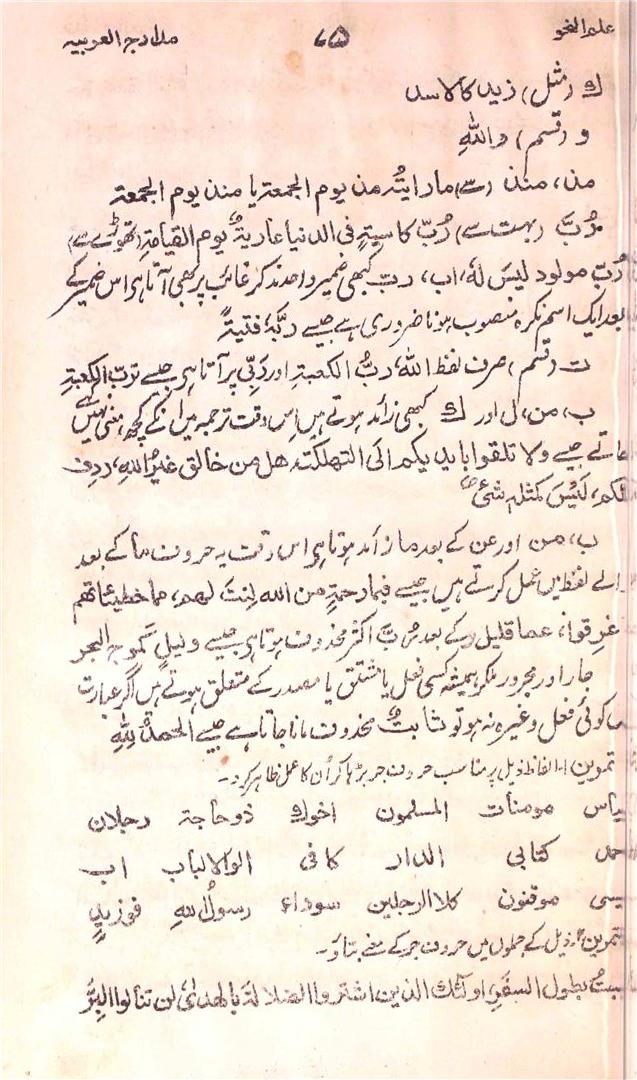 علم النحو ۷۵ مدارج العربیہ
ك (مثل) زید کالاسد
و (قسم) واللهِ
من، منذ (سے) ما رایتُہ من یوم الجمعۃ یا منذ یوم الجمعۃ
رُبَّ (بہت سے) رُبَّ کاسیۃٍ فی الدنیا عاریۃٌ یوم القیامۃِ (تھوڑے سے)
رُبَّ مولود لیسَ لہٗ اب، رب کبھی ضمیر واحد مذکر غائب پر بھی آتا ہی اس ضمیر کے
بعد ایک اسم نکرہ منصوب ہونا ضروری ہے جیسے ربَّہٗ فتیۃً
ت (قسم) صرف لفظ اللہ، ربُّ الکعبۃِ اور ربّی پر آتا ہی جیسے تربّ الکعبۃِ
ب، من، ل اور ك کبھی زائد ہوتے ہیں اِس وقت ترجمہ میں اُنکے کچھ معنی نہیں لئے
جاتے جیسے ولا تلقوا بایدیکم الی التھلکۃ، ھل من خالق غیرُ اللهِ، ردف
لکم، لَیْسَ کمثلہٖ شیٌٔ
ب، من اور عن کے بعد ما زائد ہوتا ہی اس وقت یہ حروف ما کے بعد
والے لفظ میں عمل کرتے ہیں جیسے فبما رحمۃٍ من الله لِنتَ لھم، مما خطیئاتھم
اغرقوا، عما قلیل، و کے بعد رُبَّ اکثر محذوف ہوتا ہی جیسے ولیلٍ کموج البحر
جار اور مجرور ملکر ہمیشہ کسی فعل یا مشتق یا مصدر کے متعلق ہوتے ہیں اگر عبارت
میں کوئی فعل وغیرہ نہ ہو تو ثابتٌ محذوف مانا جاتا ہے جیسے الحمدُ للهِ
تمرین ۱۔ الفاظ ذیل پر مناسب حروف جر بڑہا کر اُن کا عمل ظاہر کرو۔
مومنات المسلمون اخوك ذو حاجۃ رجلان
کتابی الدار کافی الوالالباب اب
موقنون کلا الرجلین سوداء رسولُ اللهِ فوزیدٍ
تمرین ۲۔ ذیل کے جملوں میں حروف جر کے معنے بتاؤ۔
بطول السفَرِ، اولٓئك الذین اشتروا الضلالۃَ بالھدیٰ، لن تنالوا البِرَّ